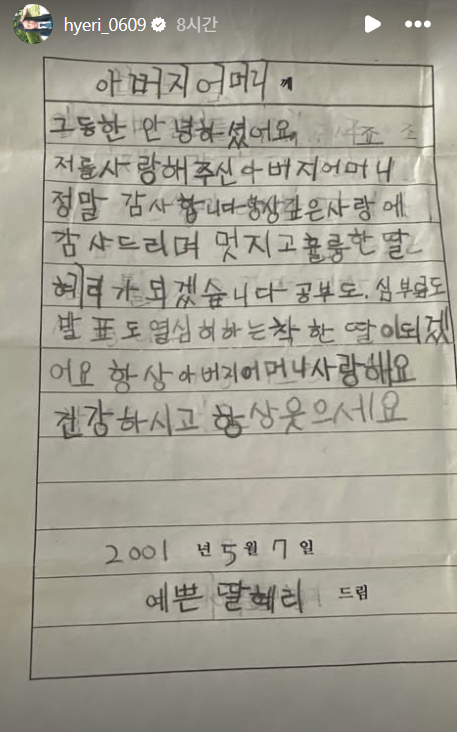 hyeri_0609 8시간
아버지어머니께
그동한 안녕하셨어요
저를사랑해주신아버지어머니
정말 감사합니다항상깊은사랑에
감사드리며 멋지고훌륭한딸
혜리가되겠습니다공부도.심부름도
발표도열심히하는착한딸이되겠
어요 항상아버지어머니사랑해요
건강하시고 항상웃으세요
2001 년 5 월 7 일
예쁜 딸혜리 드림